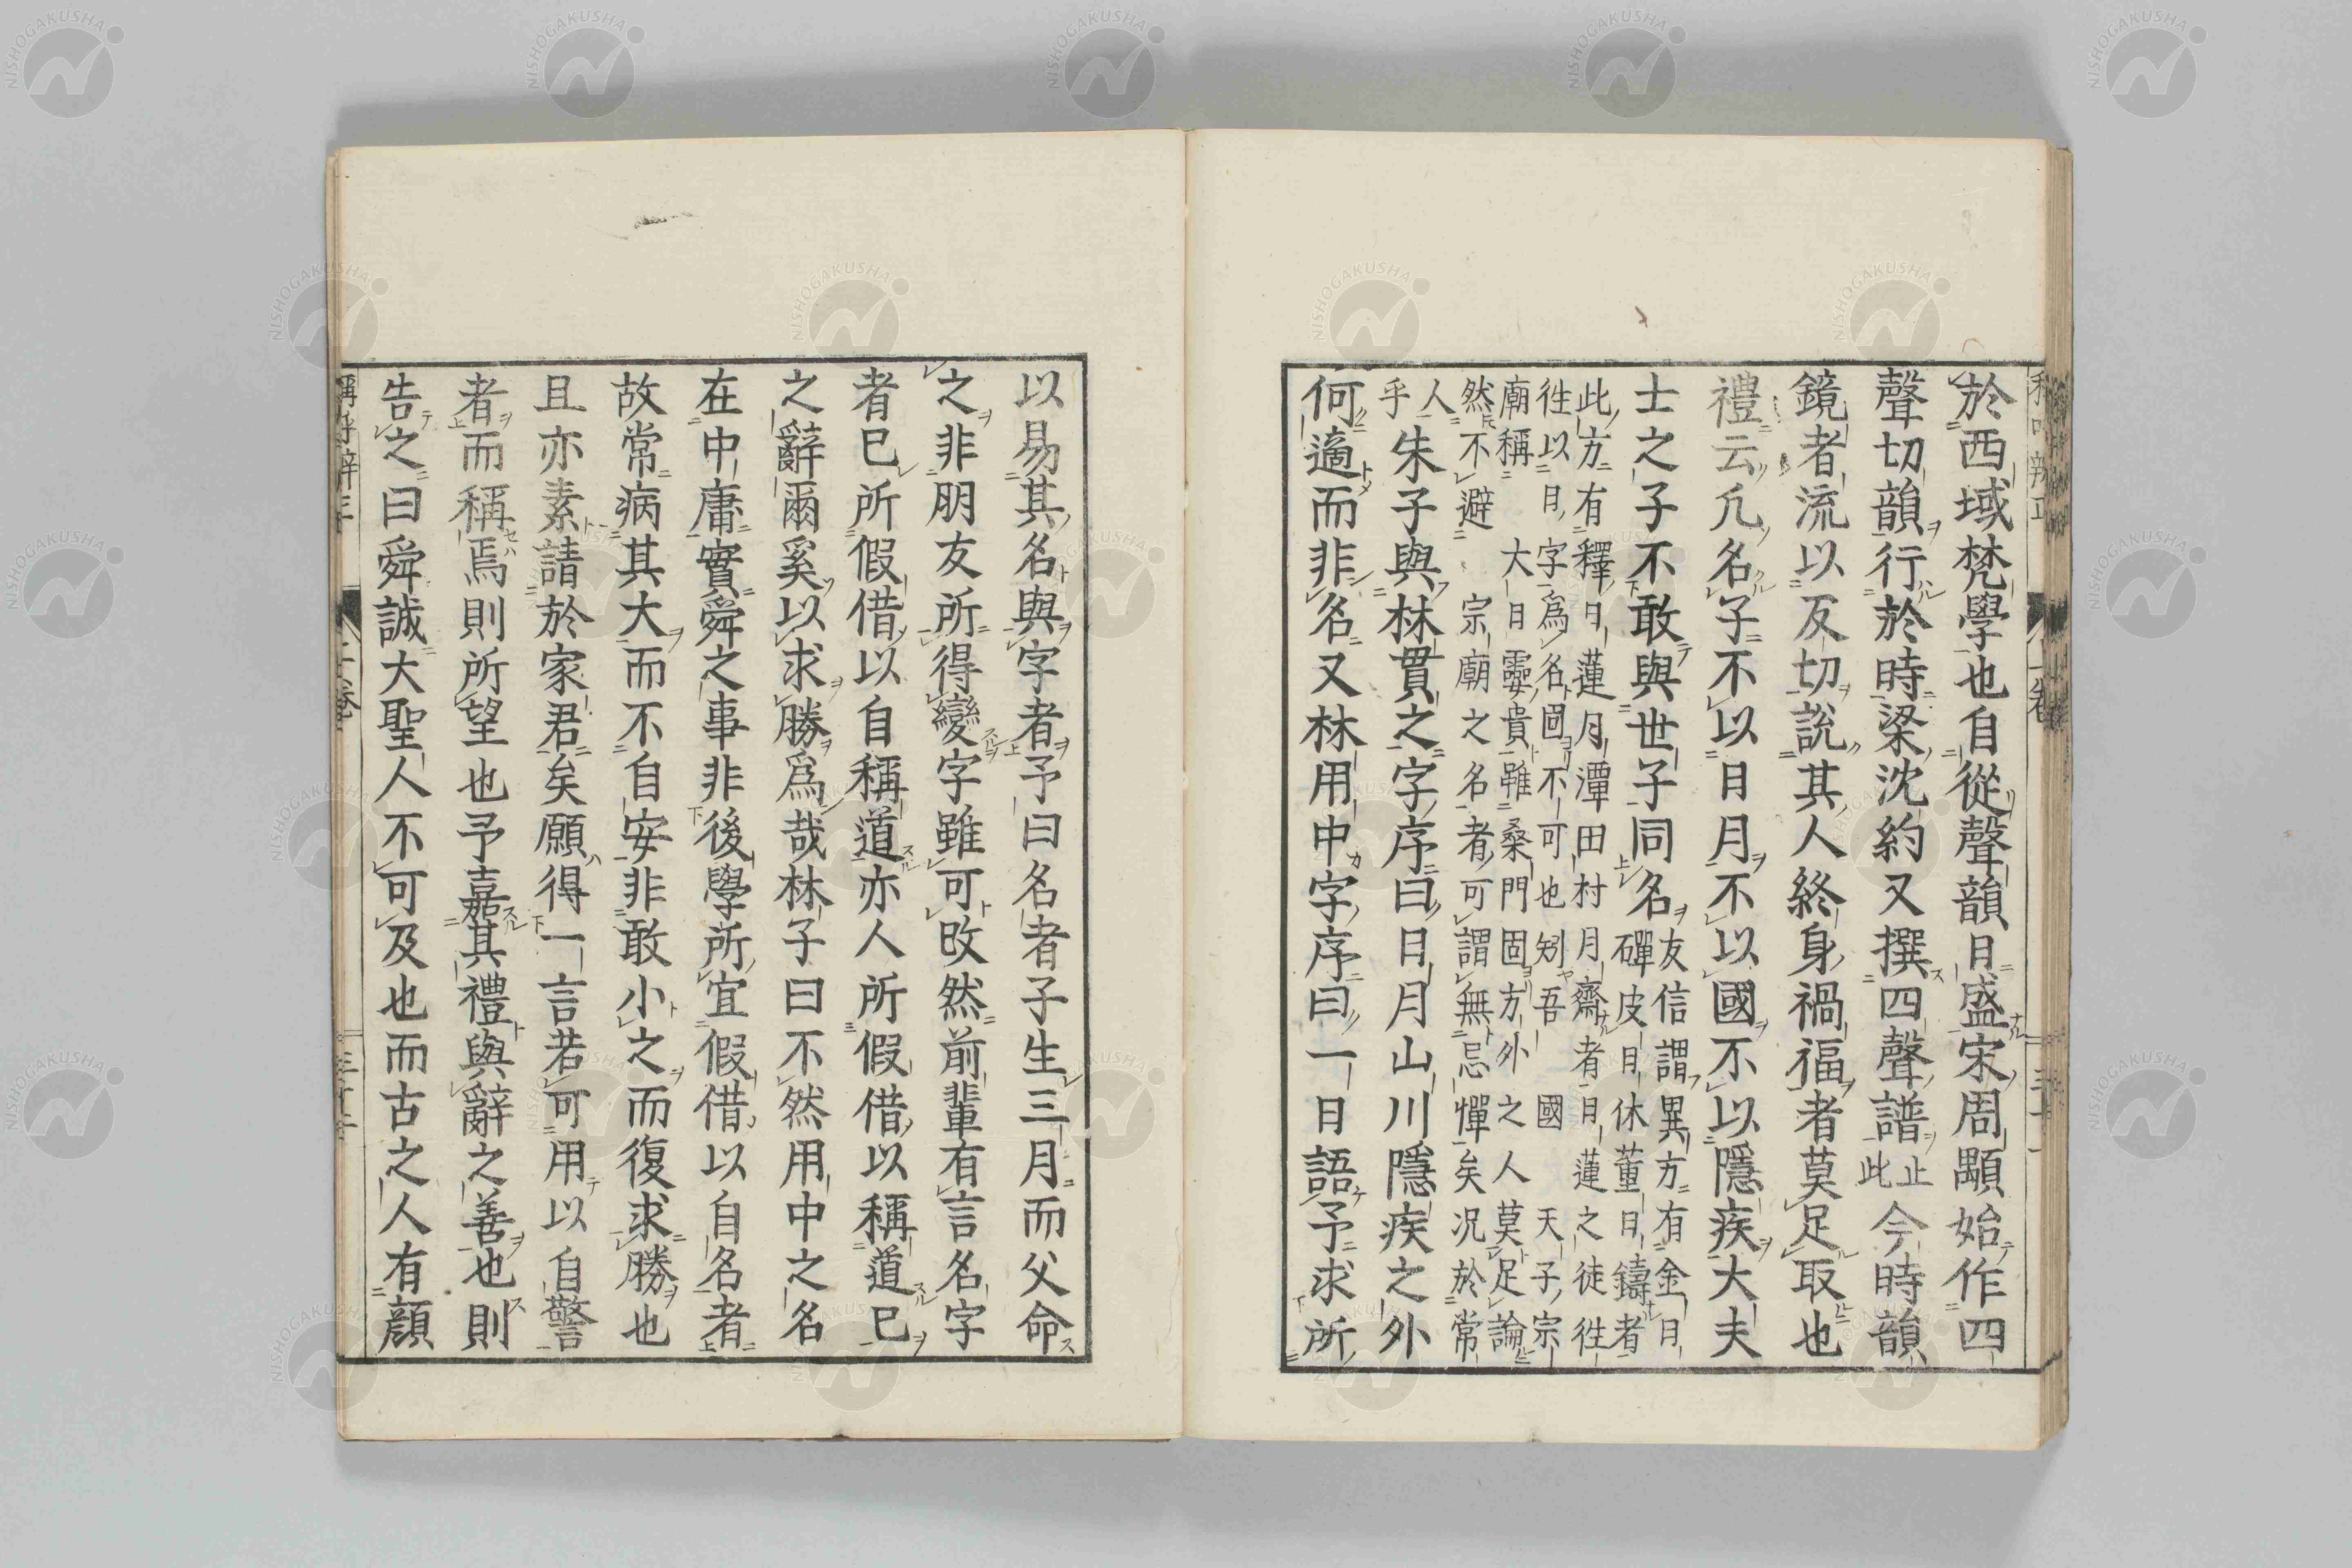 於西域梵學也自從聲韻日盛宋周顒始作四
聲切韻行於時梁沈約又撰四聲譜止此今時韻
鏡者流以反切說其人終身禍福者莫足取也
禮云凡名子不以日月不以國不以隱疾大夫
士之子不敢與世子同名友信謂異方有金日磾皮日休董日鑄者
此方有釋日蓮月潭田村月齋者日蓮之徒徃
徃以日字爲名固不可也矧吾國天子宗
廟稱大日靈貴雖桑門固方外之人莫足論
然不避宗廟之名者可謂無忌憚矣况於常
人乎朱子與林貫之字序曰日月山川隱疾之外
何適而非名又林用中字序曰一日語予求所
以易其名與字者予曰名者子生三月而父命
之非朋友所得變字雖可改然前輩有言名字
者已所假借以自稱道亦人所假借以稱道已
之辭爾奚以求勝爲哉林子曰不然用中之名
在中庸實舜之事非後學所宜假借以自名者
故常病其大而不自安非敢小之而復求勝也
且亦素請於家君矣願得一言若可用以自警
者而稱焉則所望也予嘉其禮與辭之善也則
告之曰舜誠大聖人不可及也而古之人有顔
NISHOGAKUSHA